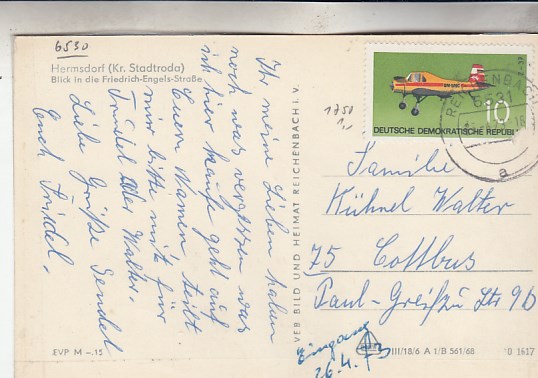 6530
Hermsdorf (Kr. Stadtroda)
Blick in die Friedrich-Engels-Straße
Ihr meine Lieben haben
noch was vergessen was
ich hier kaufe geht auf
Euern Namen teilt
mir bitte mit für
Trudel oder Walter.
Liebe Grüße sendet
Euch Friedel.
EVP M –.15
VEB BILD UND HEIMAT REICHENBACH i. V.
1750
10
DEUTSCHE DEMOKRATISCHE REPUBLIK
6531
a
Familie
Kühnel Walter
75 Cottbus
Paul-Greifzu Str 9b
Eingang
26.4.73
III/18/6 A 1/B 561/68
0 1617